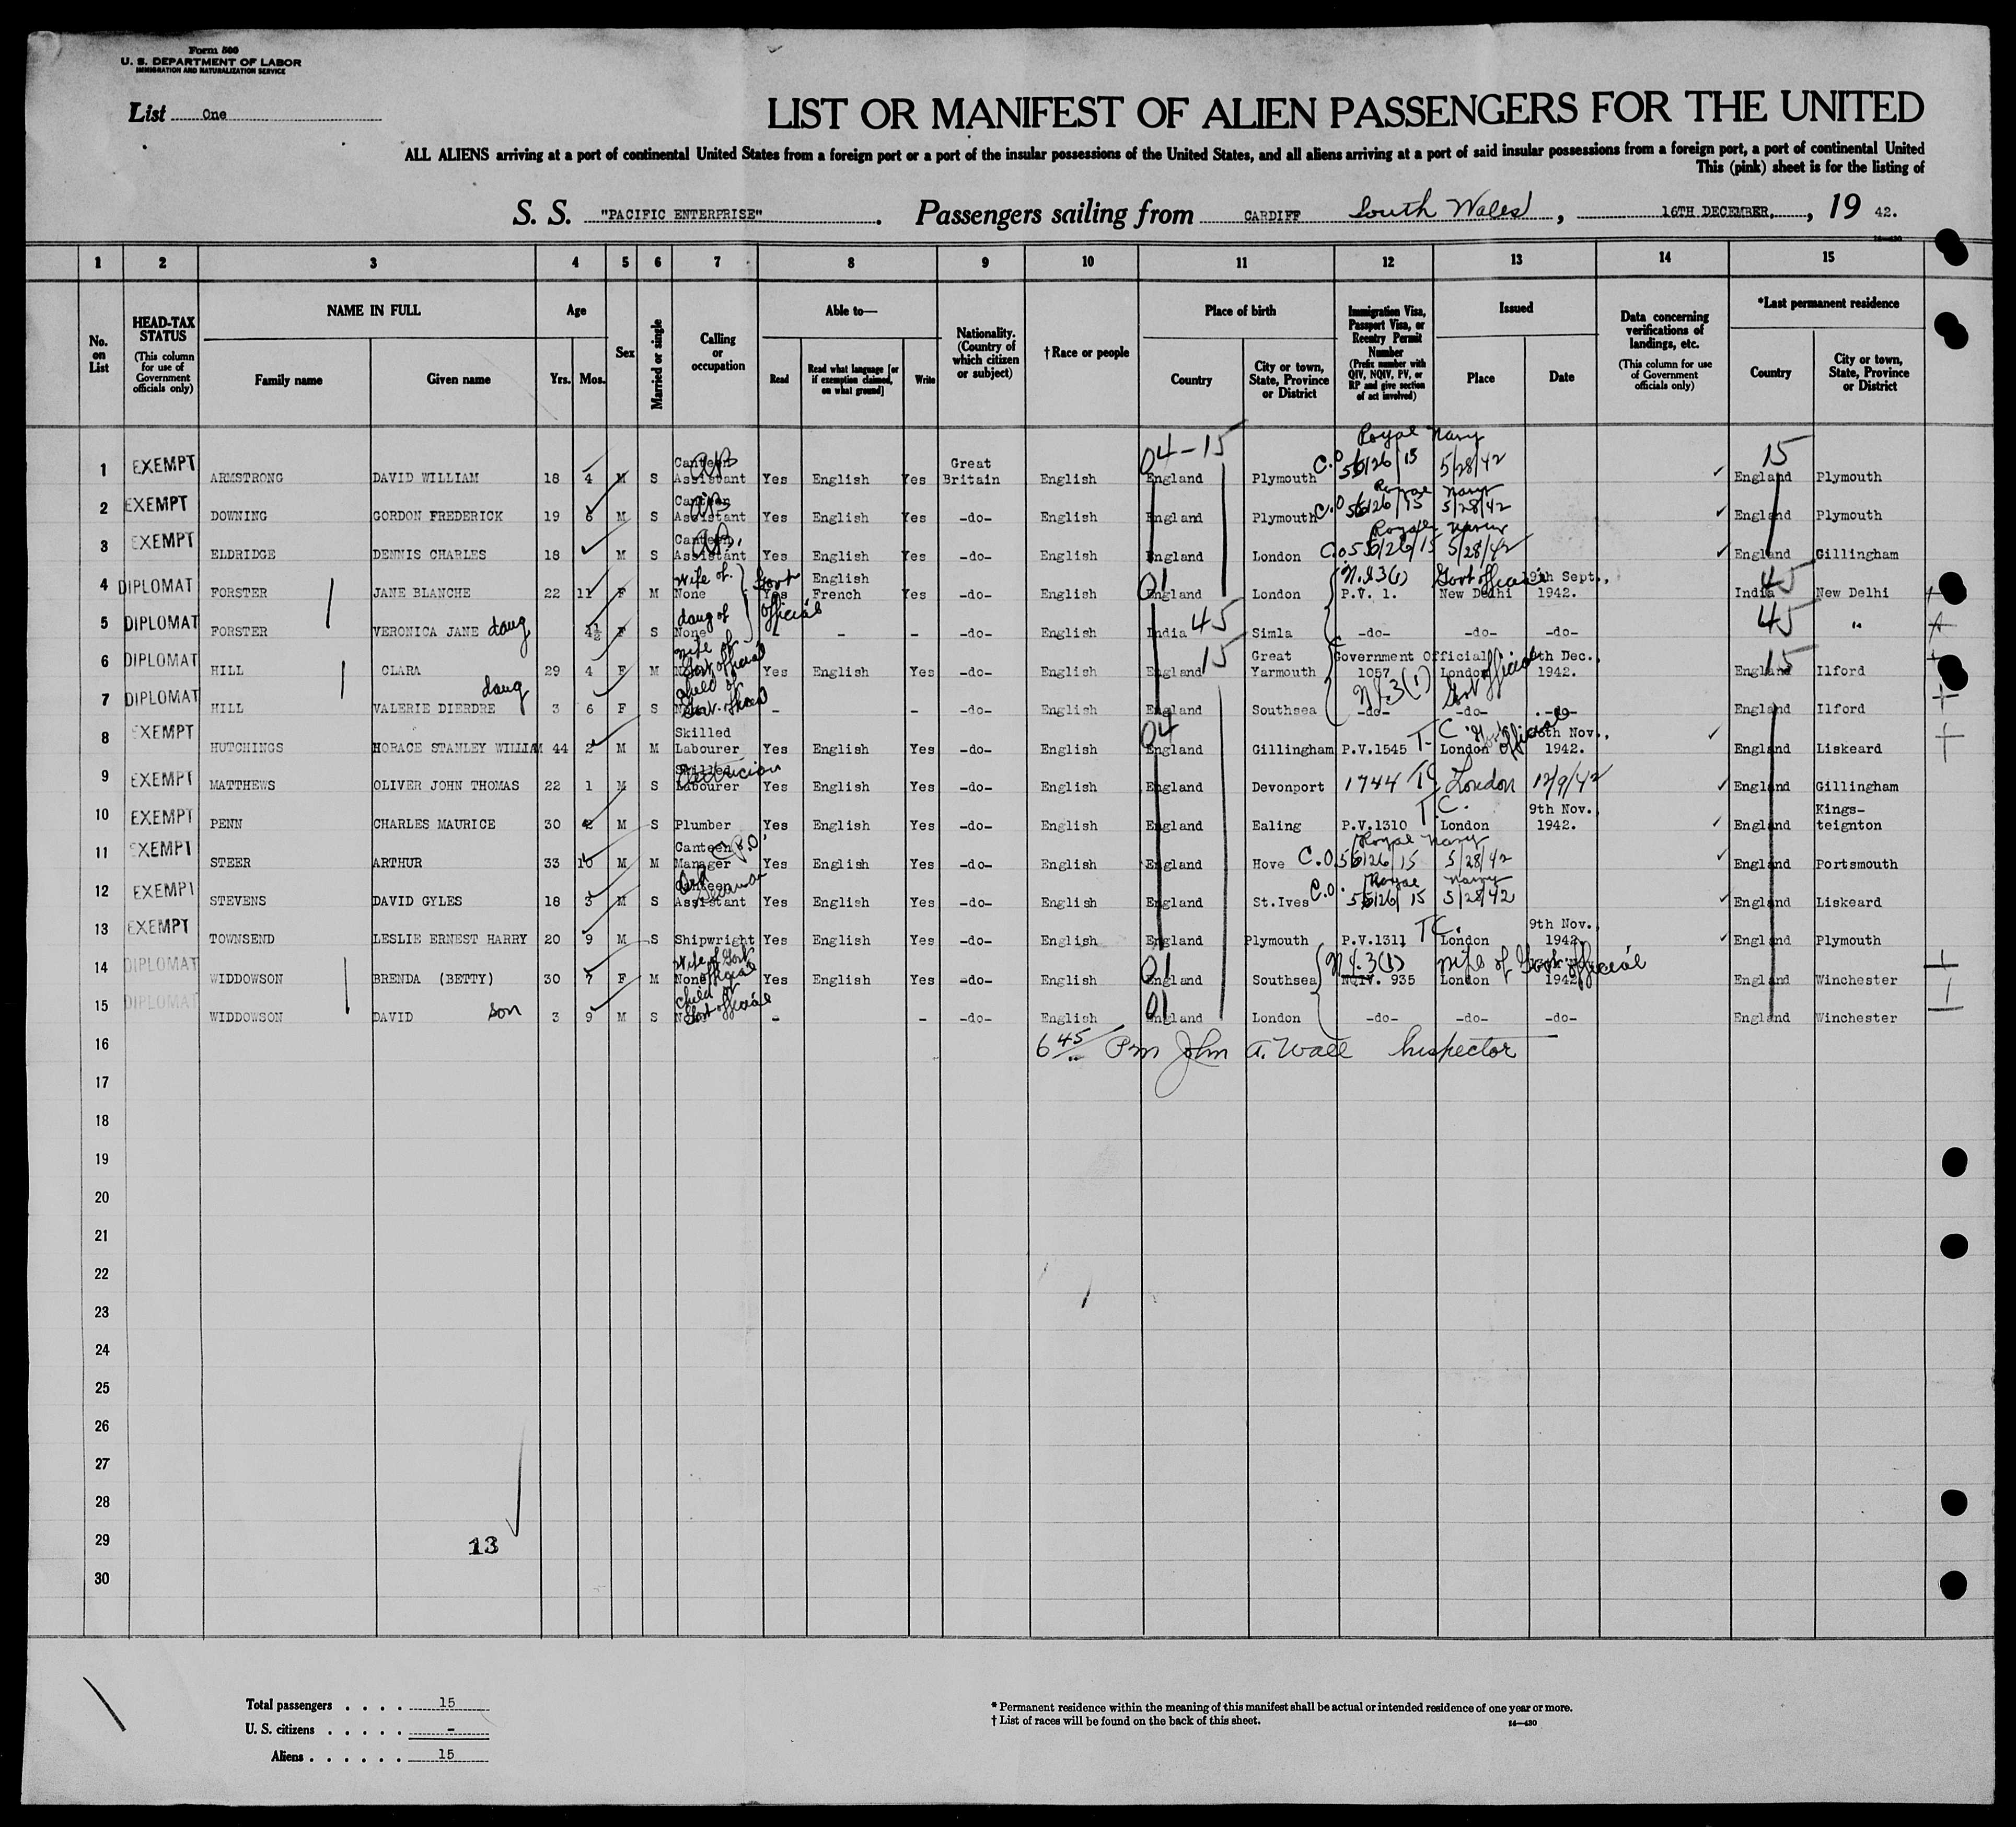 Form 500
U. S. DEPARTMENT OF LABOR
IMMIGRATION AND NATURALIZATION SERVICE
List One
LIST OR MANIFEST OF ALIEN PASSENGERS FOR THE UNITED
ALL ALIENS arriving at a port of continental United States from a foreign port or a port of the insular possessions of the United States, and all aliens arriving at a port of said insular possessions from a foreign port, a port of continental United
This (pink) sheet is for the listing of
S. S. "PACIFIC ENTERPRISE". Passengers sailing from CARDIFF South Wales, 16TH DECEMBER, , 19 42.
1 2 3 4 5 6 7 8 9 10 11 12 13 14 15
No. on List
HEAD-TAX STATUS (This column for use of Government officials only)
NAME IN FULL
Family name
Given name
Age
Yrs. Mos.
Sex
Married or single
Calling or occupation
Able to—
Read
Read what language [or if exemption claimed, on what ground]
Write
Nationality. (Country of which citizen or subject)
†Race or people
Place of birth
Country
City or town, State, Province or District
Immigration Visa, Passport Visa, or Reentry Permit Number (Prefix number with QIV, NQIV, PV, or RP and give section of act involved)
Issued
Place
Date
Data concerning verifications of landings, etc. (This column for use of Government officials only)
*Last permanent residence
Country
City or town, State, Province or District
04-15 Royal Navy 15
1 EXEMPT ARMSTRONG DAVID WILLIAM 18 4 M S Canteen Assistant Yes English Yes Great Britain English England Plymouth C.O 56/26/15 5/28/42 England Plymouth
2 EXEMPT DOWNING GORDON FREDERICK 19 6 M S Canteen Assistant Yes English Yes -do- English England Plymouth C.O 56/26/15 Royal Navy 5/28/42 England Plymouth
3 EXEMPT ELDRIDGE DENNIS CHARLES 18 M S Canteen Assistant Yes English Yes -do- English England London C.O 56/26/15 Royal Navy 5/28/42 England Gillingham
4 DIPLOMAT FORSTER JANE BLANCHE 22 11 F M wife of None Govt official Yes English French Yes -do- English 01 England London P.V. 1. Govt official New Delhi 9th Sept., 1942. 45 India New Delhi
5 DIPLOMAT FORSTER VERONICA JANE daug 4½ F S daug of None - - - -do- English India 45 Simla -do- -do- -do- 45 "
6 DIPLOMAT HILL CLARA 29 4 F M wife of Govt official Yes English Yes -do- English England 15 Great Yarmouth Government Official 1057 London Dec., 1942. England 15 Ilford
7 DIPLOMAT HILL VALERIE DIERDRE daug 3 6 F S child of Govt. official - - -do- English England Southsea 3(1) Govt official -do- -do- -do- England Ilford
8 EXEMPT HUTCHINGS HORACE STANLEY WILLIAM 44 2 M M Skilled Labourer Yes English Yes -do- English 04 England Gillingham P.V.1545 T.C. London official Nov., 1942. England Liskeard
9 EXEMPT MATTHEWS OLIVER JOHN THOMAS 22 1 M S Skilled Labourer Electrician Yes English Yes -do- English England Devonport 1744 TC London 12/9/42 England Gillingham
10 EXEMPT PENN CHARLES MAURICE 30 2 M S Plumber Yes English Yes -do- English England Ealing P.V.1310 T.C. London 9th Nov., 1942. England Kings-teignton
11 EXEMPT STEER ARTHUR 33 10 M M Canteen Manager C.P.O. Yes English Yes -do- English England Hove C.O. 56/26/15 Royal Navy 5/28/42 England Portsmouth
12 EXEMPT STEVENS DAVID GYLES 18 3 M S Canteen Assistant Ord Seaman Yes English Yes -do- English England St.Ives C.O. 56/26/15 Royal Navy 5/28/42 England Liskeard
13 EXEMPT TOWNSEND LESLIE ERNEST HARRY 20 9 M S Shipwright Yes English Yes -do- English England Plymouth P.V.1311 T.C. London 9th Nov., 1942. England Plymouth
14 DIPLOMAT WIDDOWSON BRENDA (BETTY) 30 7 F M wife of Govt official None Yes English Yes -do- English 01 England Southsea 3(1) wife of Govt official NQIV. 935 London 1942 England Winchester
15 DIPLOMAT WIDDOWSON DAVID son 3 9 M S child of Govt official - - -do- English 01 England London -do- -do- -do- England Winchester
16 6 45 Pm John A. Wall Inspector
17
18
19
20
21
22
23
24
25
26
27
28
29 13
30
Total passengers . . . . 15
U. S. citizens . . . . . -
Aliens . . . . . . 15
* Permanent residence within the meaning of this manifest shall be actual or intended residence of one year or more.
† List of races will be found on the back of this sheet.
14—430